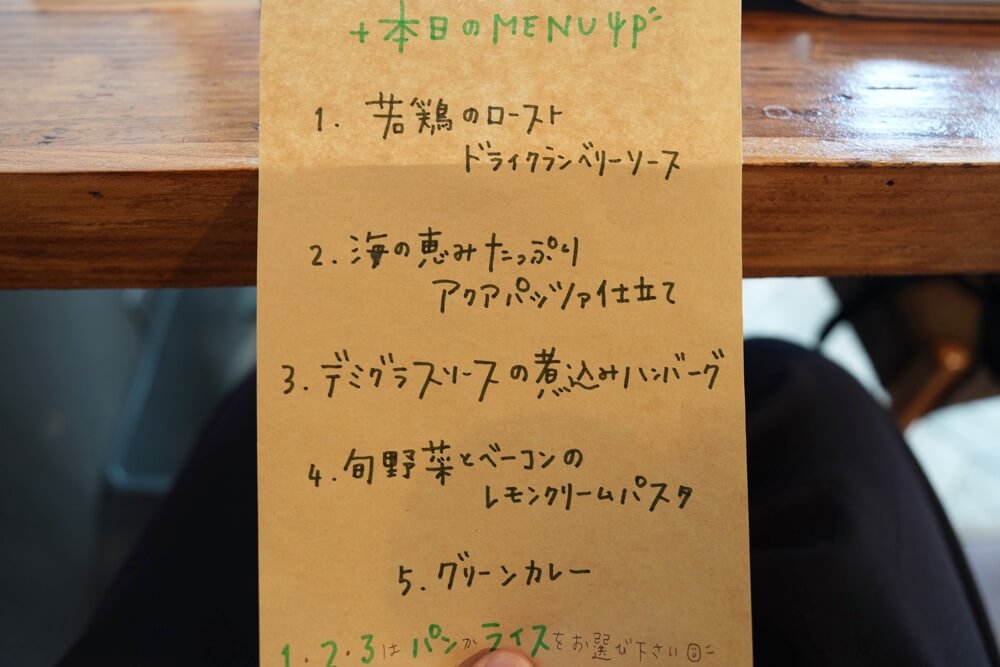 +本日のMENU up
1. 若鶏のロースト
ドライクランベリーソース
2. 海の恵みたっぷり
アクアパッツァ仕立て
3. デミグラスソースの煮込みハンバーグ
4. 旬野菜とベーコンの
レモンクリームパスタ
5. グリーンカレー
1.2.3はパンかライスをお選び下さい